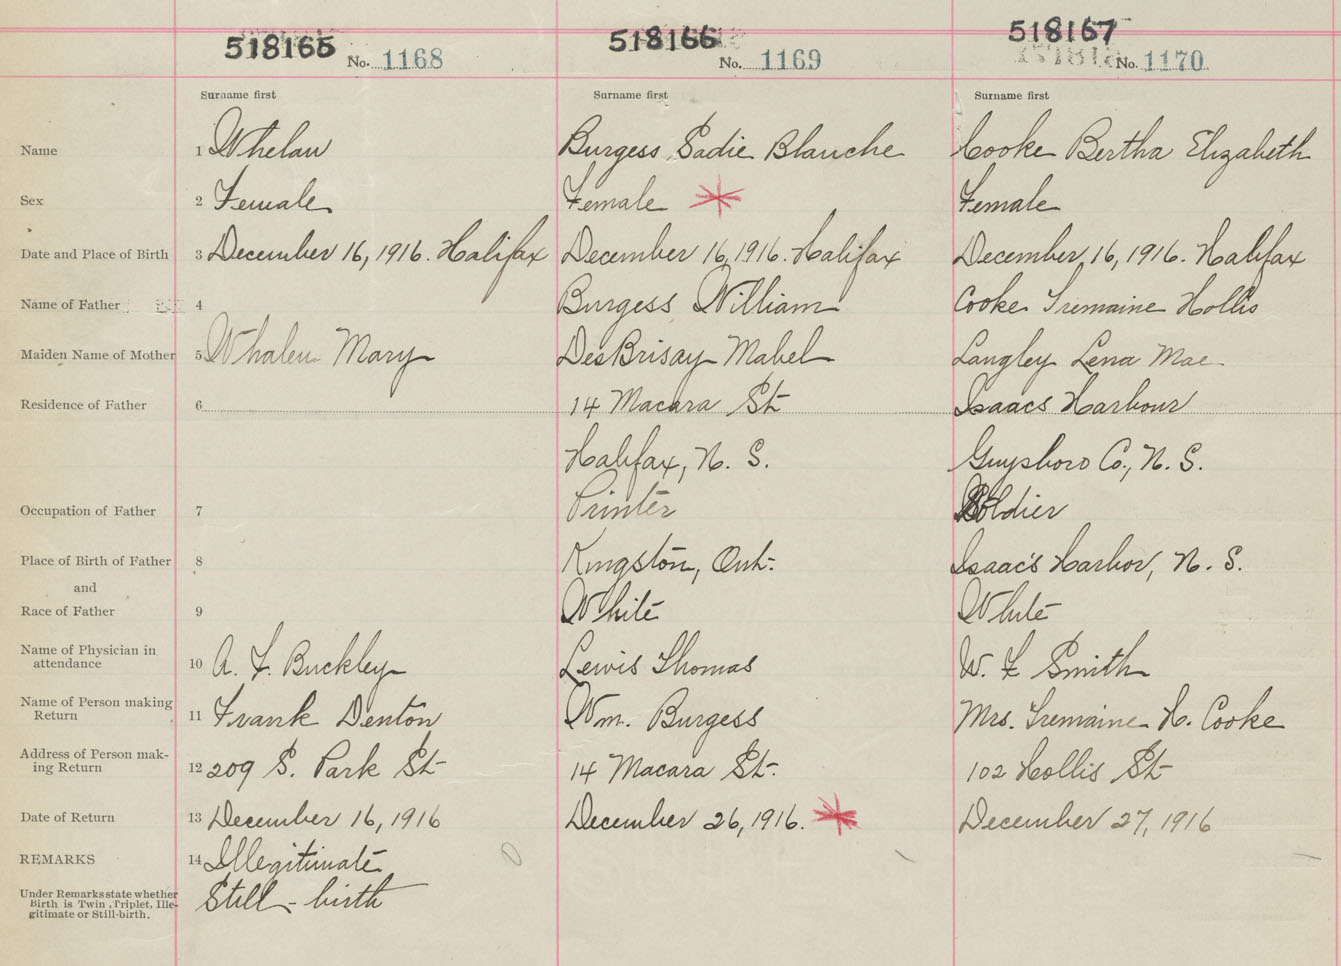 518165 518166 518167
No. 1168 No. 1169 No. 1170
Surname first Surname first Surname first
Name 1 Whelan Burgess Sadie Blanche Cooke Bertha Elizabeth
Sex 2 Female Female Female
Date and Place of Birth 3 December 16, 1916. Halifax December 16, 1916. Halifax December 16, 1916. Halifax
Name of Father 4 Burgess William Cooke Tremaine Hollis
Maiden Name of Mother 5 Whalen Mary DesBrisay Mabel Langley Lena Mae
Residence of Father 6 14 Macara St Isaacs Harbour
Halifax, N. S. Guysboro Co., N. S.
Occupation of Father 7 Printer Soldier
Place of Birth of Father 8 Kingston, Ont. Isaac's Harbor, N. S.
and
Race of Father 9 White White
Name of Physician in
attendance 10 A. F. Buckley Lewis Thomas W. F Smith
Name of Person making
Return 11 Frank Denton Wm. Burgess Mrs. Tremaine H. Cooke
Address of Person mak-
ing Return 12 209 S. Park St 14 Macara St. 102 Hollis St
Date of Return 13 December 16, 1916 December 26, 1916. December 27, 1916
REMARKS 14 Illegitimate
Under Remarks state whether
Birth is Twin, Triplet, Ille-
gitimate or Still-birth. Still-birth